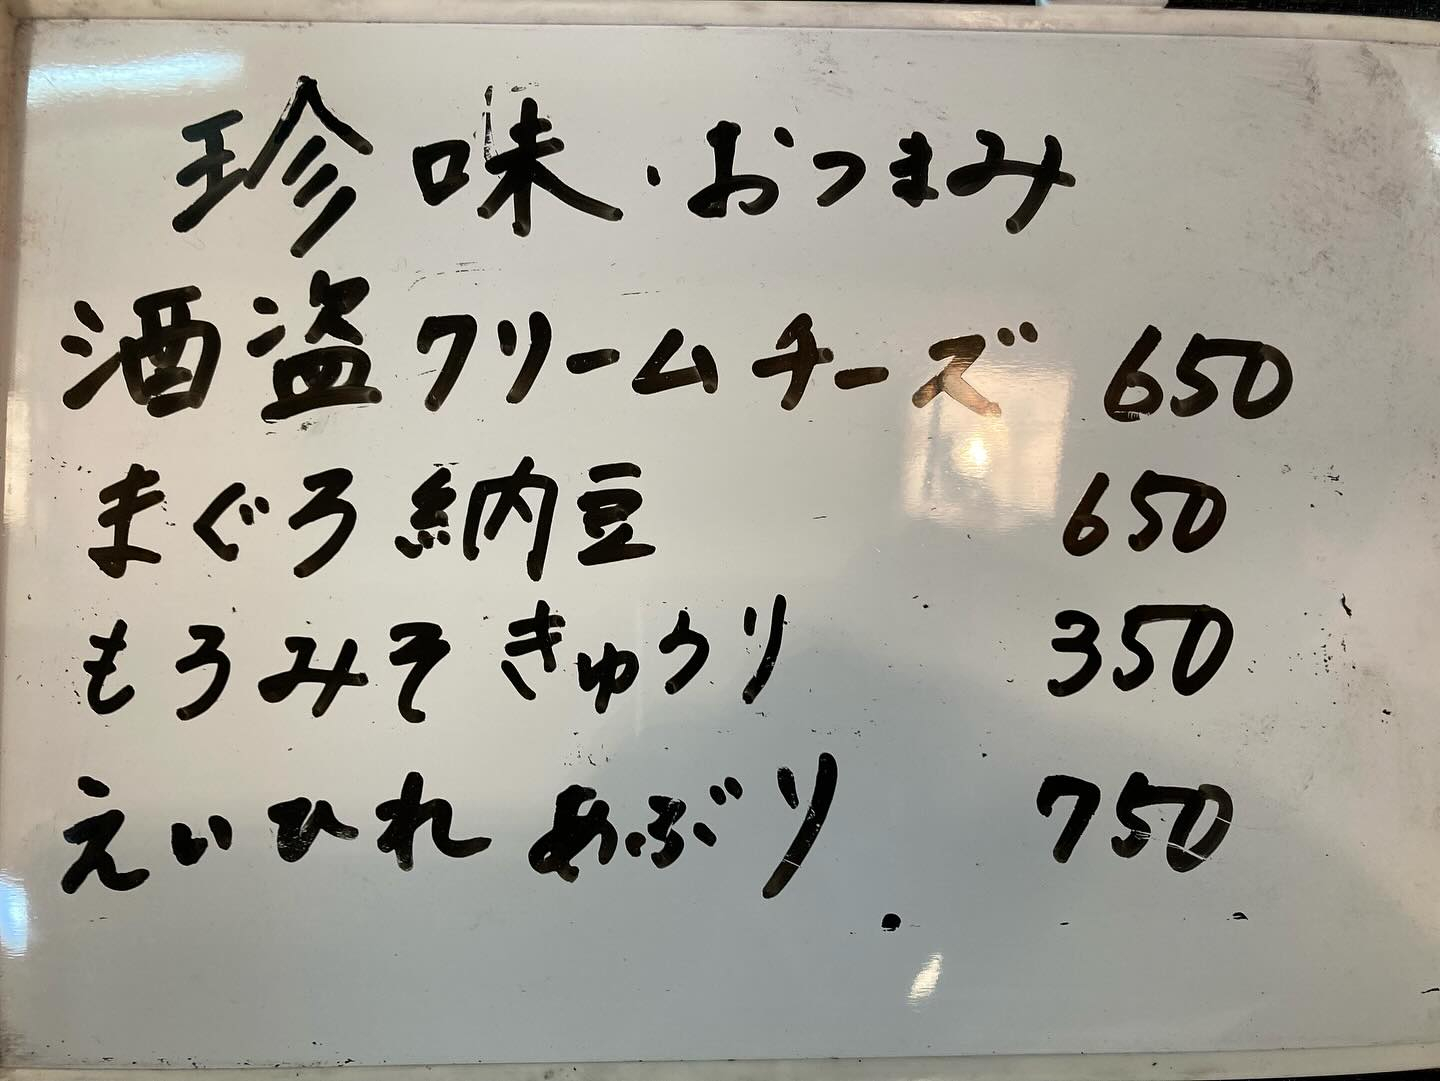 珍味・おつまみ
酒盗クリームチーズ 650
まぐろ納豆 650
もろみそきゅうり 350
えいひれあぶり 750